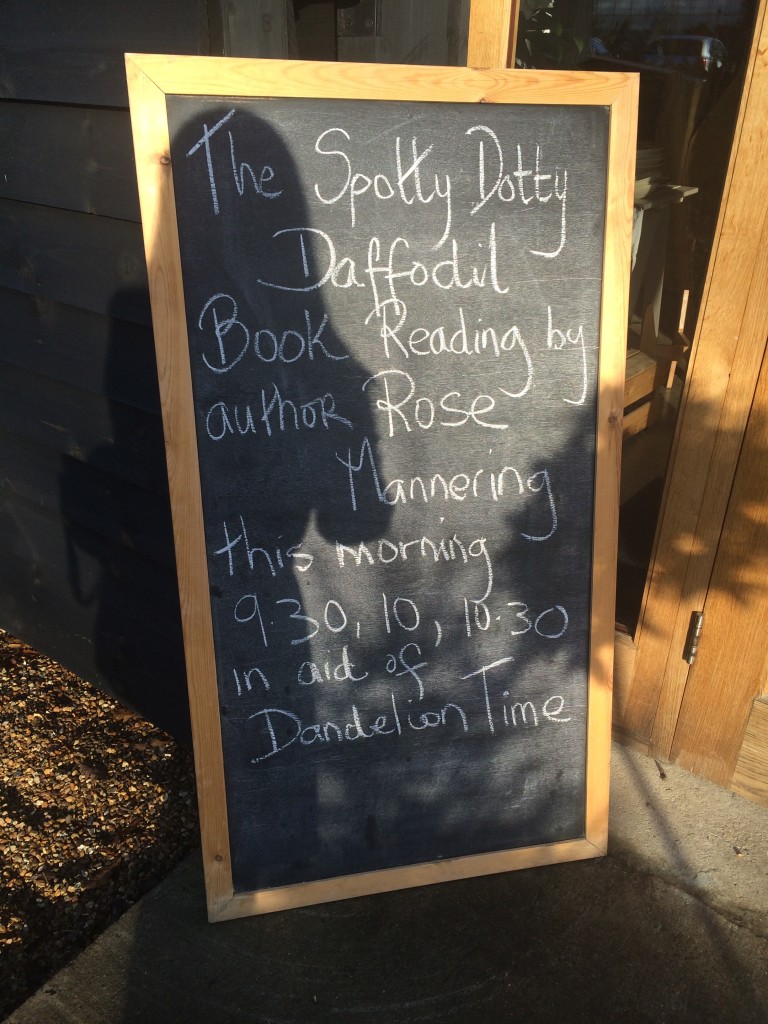 The Spotty Dotty
Daffodil
Book Reading by
author Rose
Mannering
this morning
9.30, 10, 10.30
in aid of
Dandelion Time